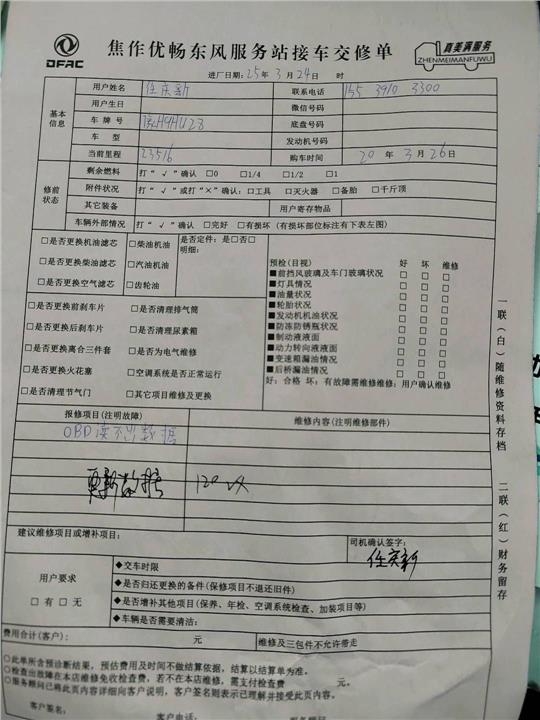 DFAC
焦作优畅东风服务站接车交修单
真美满服务
ZHENMEIMANFUWU
进厂日期：25年3月24日 时
基本信息
用户姓名 任庆新 联系电话 155 3910 3300
用户生日 微信号码
车牌号 豫H9HU28 底盘号码
车型 发动机号码
当前里程 23516 购车时间 20年3月26日
修前状态
剩余燃料 打“√”确认 □0 □1/4 □1/2 □1
附件状况 打“√”或打“×”确认：□工具 □灭火器 □备胎 □千斤顶
其它装备 用户寄存物品
车辆外部情况 打“√”确认 □完好 □有损坏（有损坏部位标注有下表左图）
□是否更换机油滤芯 □柴油机油 是否定件：是□否□
明细：
□是否更换柴油滤芯 □汽油机油
□是否更换空气滤芯 □齿轮油
□是否更换前刹车片 □是否清理排气筒
□是否更换后刹车片 □是否清理尿素箱
□是否更换离合三件套 □是否为电气维修
□是否更换火花塞 □空调系统是否正常运行
□是否清理节气门 □其它项目维修及更换
预检（目视） 好 坏 维修
■前挡风玻璃及车门玻璃状况 □ □ □
■灯具情况 □ □ □
■油量状况 □ □ □
■轮胎状况 □ □ □
■发动机机油状况 □ □ □
■防冻防锈瓶状况 □ □ □
■制动液液面 □ □ □
■动力转向液液面 □ □ □
■变速箱漏油情况 □ □ □
■后桥漏油情况 □ □ □
好：合格 坏：有故障需维修维修：用户确认维修
报修项目（注明故障） 维修内容（注明维修部件）
OBD读不出数据
更新数据 120
建议维修项目或增补项目：
司机确认签字：
任庆新
用户要求
□有 □无
◆交车时限
◆是否归还更换的备件（保修项目不退还旧件）
◆是否增补其他项目（保养、年检、空调系统检查、加装项目等）
◆车辆是否需要清洁：
费用合计（客户）： 元 维修及三包件不允许带走
○此单所含预诊断结果，预估费用及时间不做结算依据，结算以结算单为准。
○检查出故障在本店维修免收检查费，若不在本店维修，需支付检查费 元。
○服务顾问已将此页内容详细向客户说明，客户签名则表示已理解并接受此页内容。
客户签名： 客户电话： 服务顾问
一联（白）随维修资料存档
二联（红）财务留存